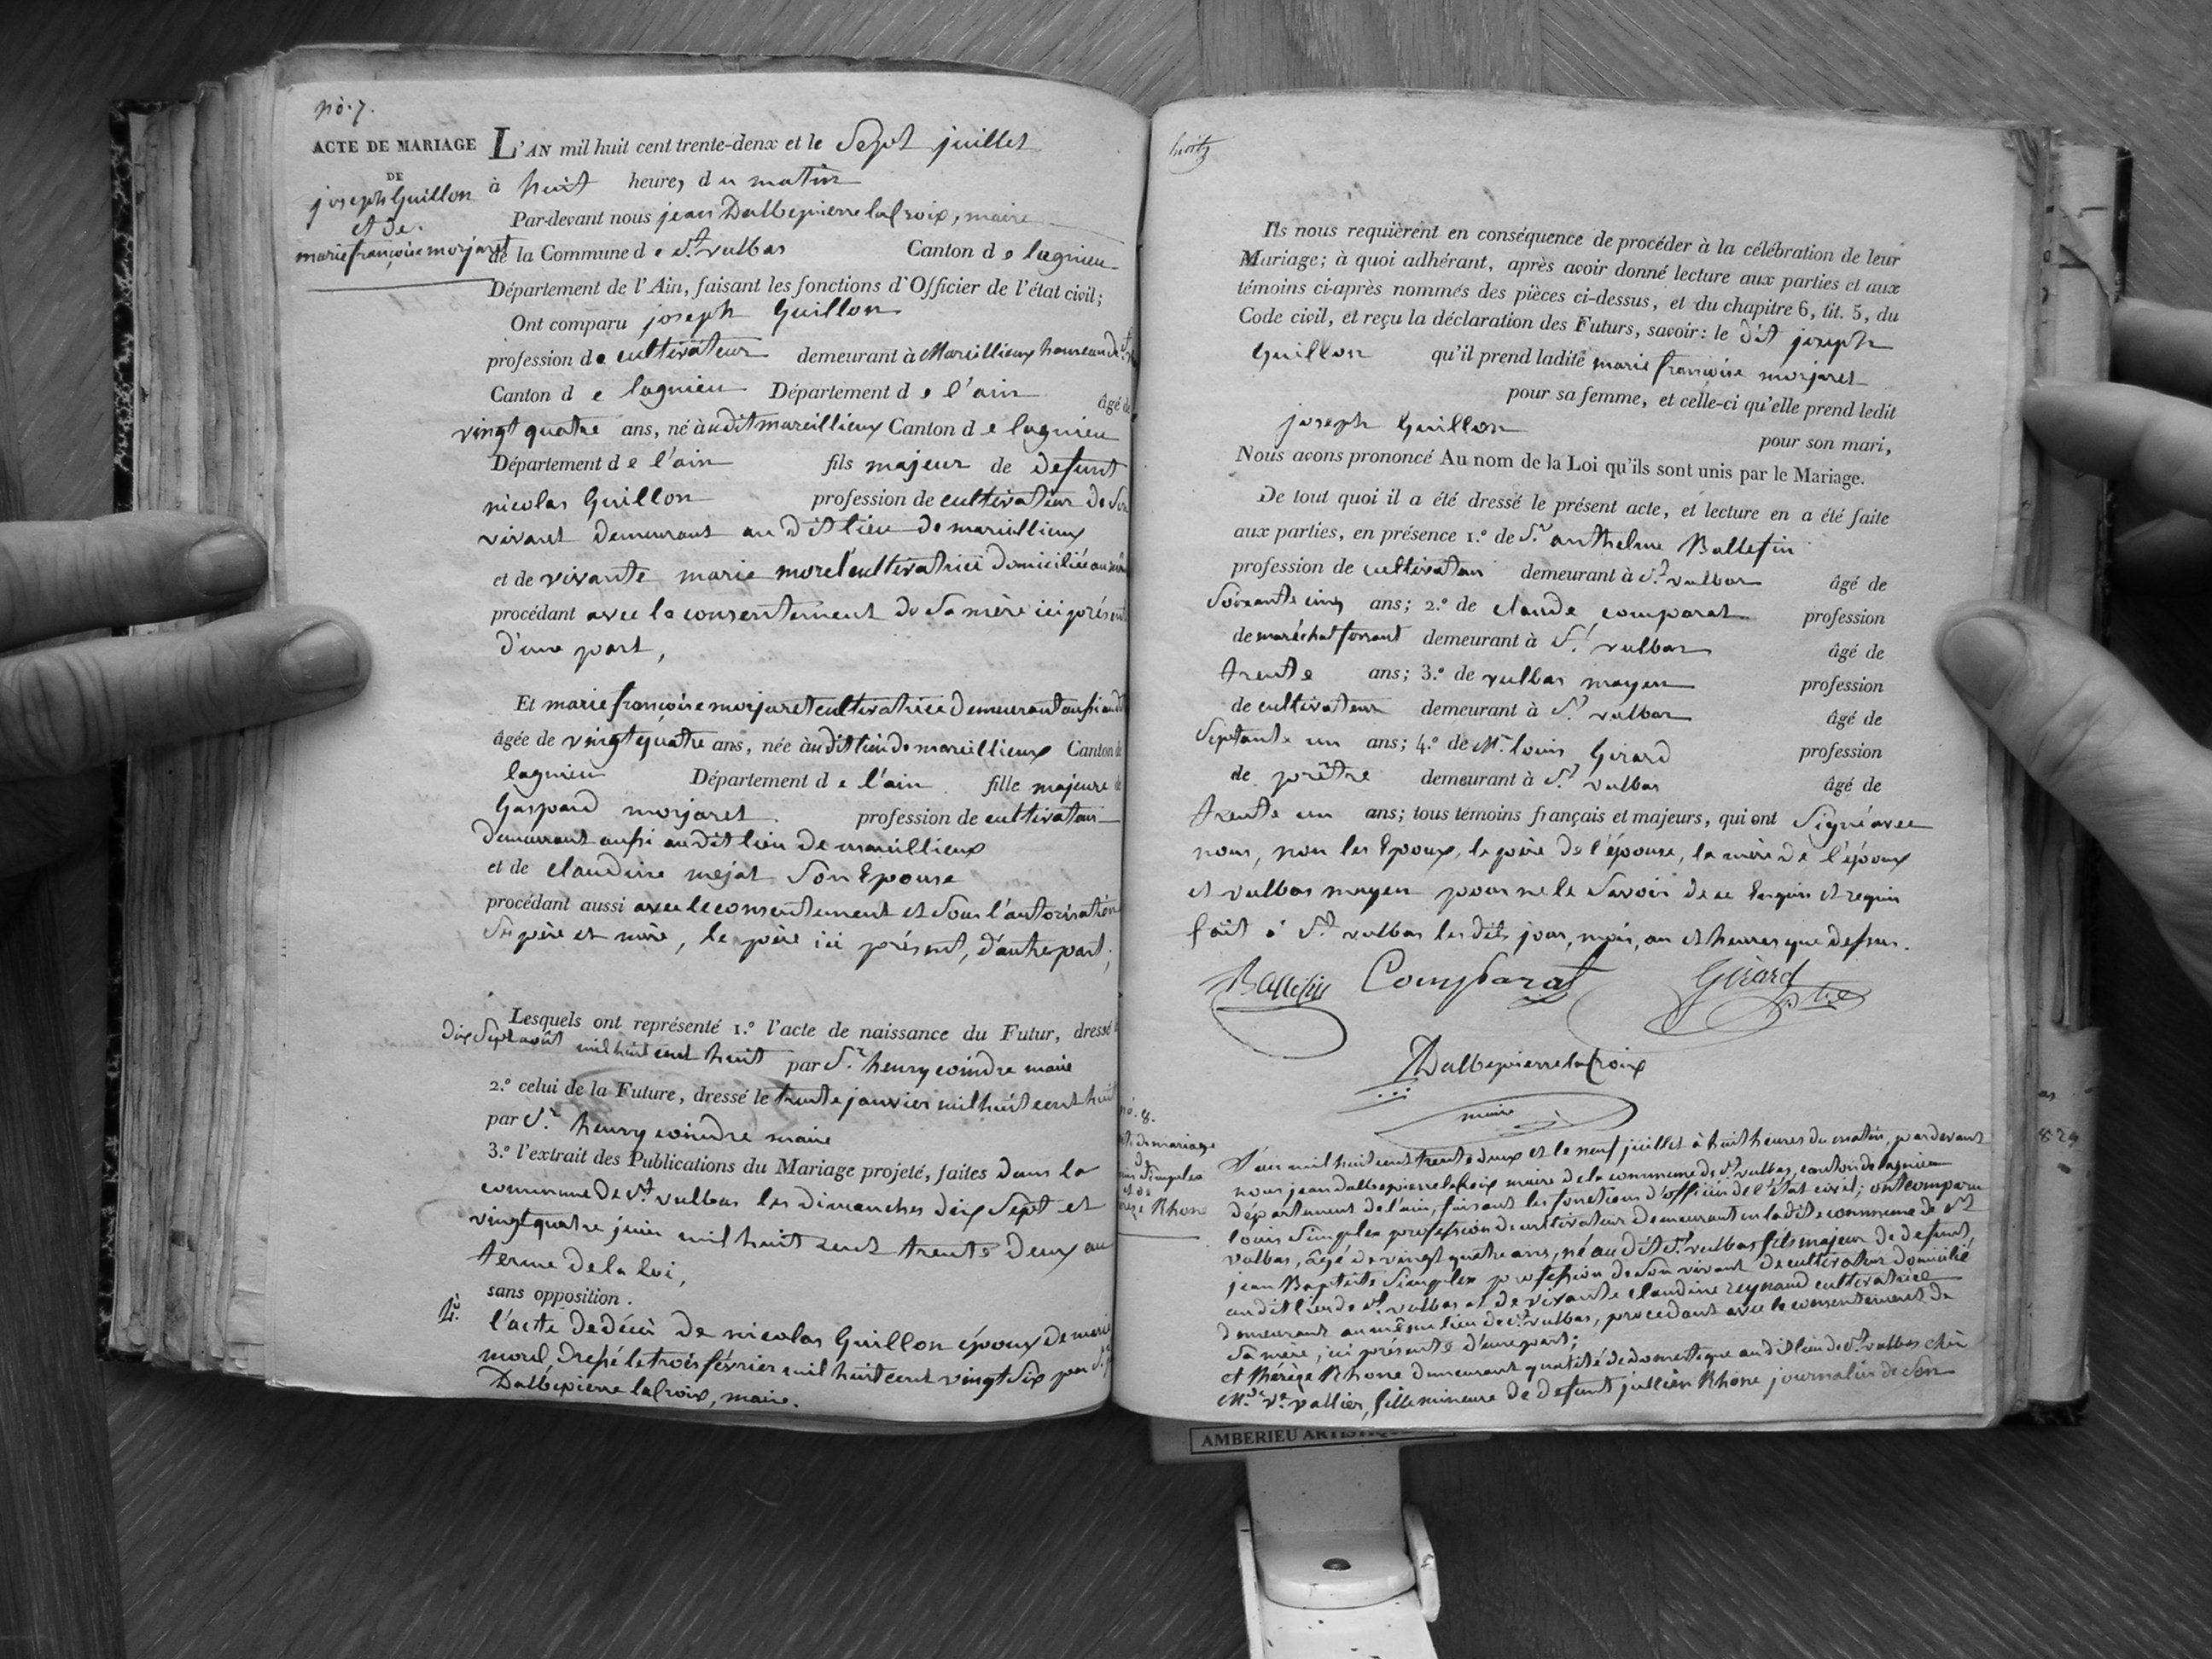 no. 7.
ACTE DE MARIAGE
DE
joseph Guillon
et de
marie françoise morjaret
L'AN mil huit cent trente-deux et le Sept juillet
à huit heures du matin
Par-devant nous jean Dalbepierre lacroix, maire
de la Commune de St. vulbas Canton de lagnieu
Département de l'Ain, faisant les fonctions d'Officier de l'état civil;
Ont comparu joseph Guillon
profession de cultivateur demeurant à Marcillieux hameau de St
Canton de lagnieu Département de l'ain âgé de
vingt quatre ans, né audit marcillieux Canton de lagnieu
Département de l'ain fils majeur de defunt
nicolas Guillon profession de cultivateur de Son
vivant demeurant au dit lieu de marcillieux
et de vivante marie morel cultivatrice domiciliée au même
procédant avec le consentement de Sa mère ici présente
d'une part,
Et marie françoise morjaret cultivatrice demeurant aussi audit
âgée de vingt quatre ans, née audit lieu de marcillieux Canton de
lagnieu Département de l'ain fille majeure de
Gaspard morjaret profession de cultivateur
demeurant aussi audit lieu de marcillieux
et de claudine mejat Son Epouse
procédant aussi avec le consentement et Sous l'autorisation
Ses père et mère, le père ici présent, d'autre part;
Lesquels ont représenté 1.° l'acte de naissance du Futur, dressé le
dix Sept août mil huit cent huit par Sr. henry coindre maire
2.° celui de la Future, dressé le trente janvier mil huit cent huit
par Sr. henry coindre maire
3.° l'extrait des Publications du Mariage projeté, faites dans la
commune de St vulbas les dimanches dix Sept et
vingt quatre juin mil huit cent trente deux au
terme de la loi,
sans opposition.
4.° l'acte de décès de nicolas Guillon époux de marie
morel, dressé le trois février mil huit cent vingt Six par Sr. j
Dalbepierre lacroix, maire.
huit
Ils nous requièrent en conséquence de procéder à la célébration de leur
Mariage; à quoi adhérant, après avoir donné lecture aux parties et aux
témoins ci-après nommés des pièces ci-dessus, et du chapitre 6, tit. 5, du
Code civil, et reçu la déclaration des Futurs, savoir: le dit joseph
Guillon qu'il prend ladite marie françoise morjaret
pour sa femme, et celle-ci qu'elle prend ledit
joseph Guillon pour son mari,
Nous avons prononcé Au nom de la Loi qu'ils sont unis par le Mariage.
De tout quoi il a été dressé le présent acte, et lecture en a été faite
aux parties, en présence 1.° de Sr. anthelme Ballefin
profession de cultivateur demeurant à St. vulbas âgé de
Soixante cinq ans; 2.° de claude comparat profession
de maréchal ferrant demeurant à St. vulbas âgé de
trente ans; 3.° de vulbas moyen profession
de cultivateur demeurant à St. vulbas âgé de
Septante un ans; 4.° de Mr. louis Girard profession
de prêtre demeurant à St. vulbas âgé de
trente un ans; tous témoins français et majeurs, qui ont Signé avec
nous, non les Epoux, le père de l'épouse, la mère de l'époux
et vulbas moyen pour ne le Savoir de ce Enquis et requis
fait à St. vulbas les dits jour, mois, an et heures que dessus.
Ballefin Comparat Girard ptre
Dalbepierre lacroix
maire
no. 8.
de mariage
de
Simplex
et de
Rhone
L'an mil huit cent trente deux et le neuf juillet à huit heures du matin, pardevant
nous jean dalbepierre lacroix maire de la commune de St vulbas, canton de lagnieu
département de l'ain, faisant les fonctions d'officier de l'état civil; ont comparu
louis Simplex profession de cultivateur demeurant en la dite commune de St
vulbas, âgé de vingt quatre ans, né au dit St. vulbas fils majeur de defunt
jean Baptiste Simplex profession de Son vivant de cultivateur domicilié
au dit lieu de St. vulbas et de vivante claudine reynaud cultivatrice
demeurant au même lieu de St. vulbas, procedant avec le consentement de
Sa mère, ici présente d'une part;
et thérèze Rhone demeurant qualité de domestique au dit lieu de St. vulbas chez
Mde. Ve. vallier, fille mineure de defunt jullien Rhone journalier de Son
AMBERIEU ARTISTIQUE